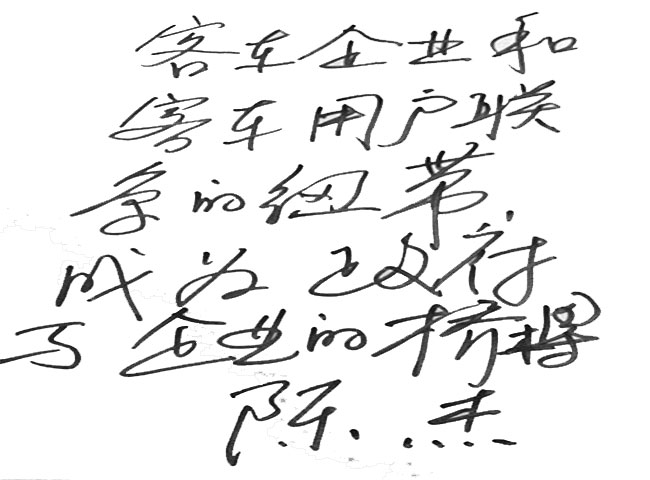 客车企业和
客车用户联
系的纽带
成为政府
与企业的桥梁
陈杰